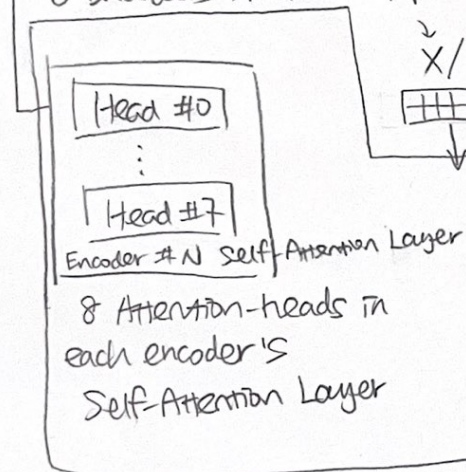 X/
Head #0
⋮
Head #7
Encoder #N Self-Attention Layer
8 Attention-heads in
each encoder's
Self-Attention Layer